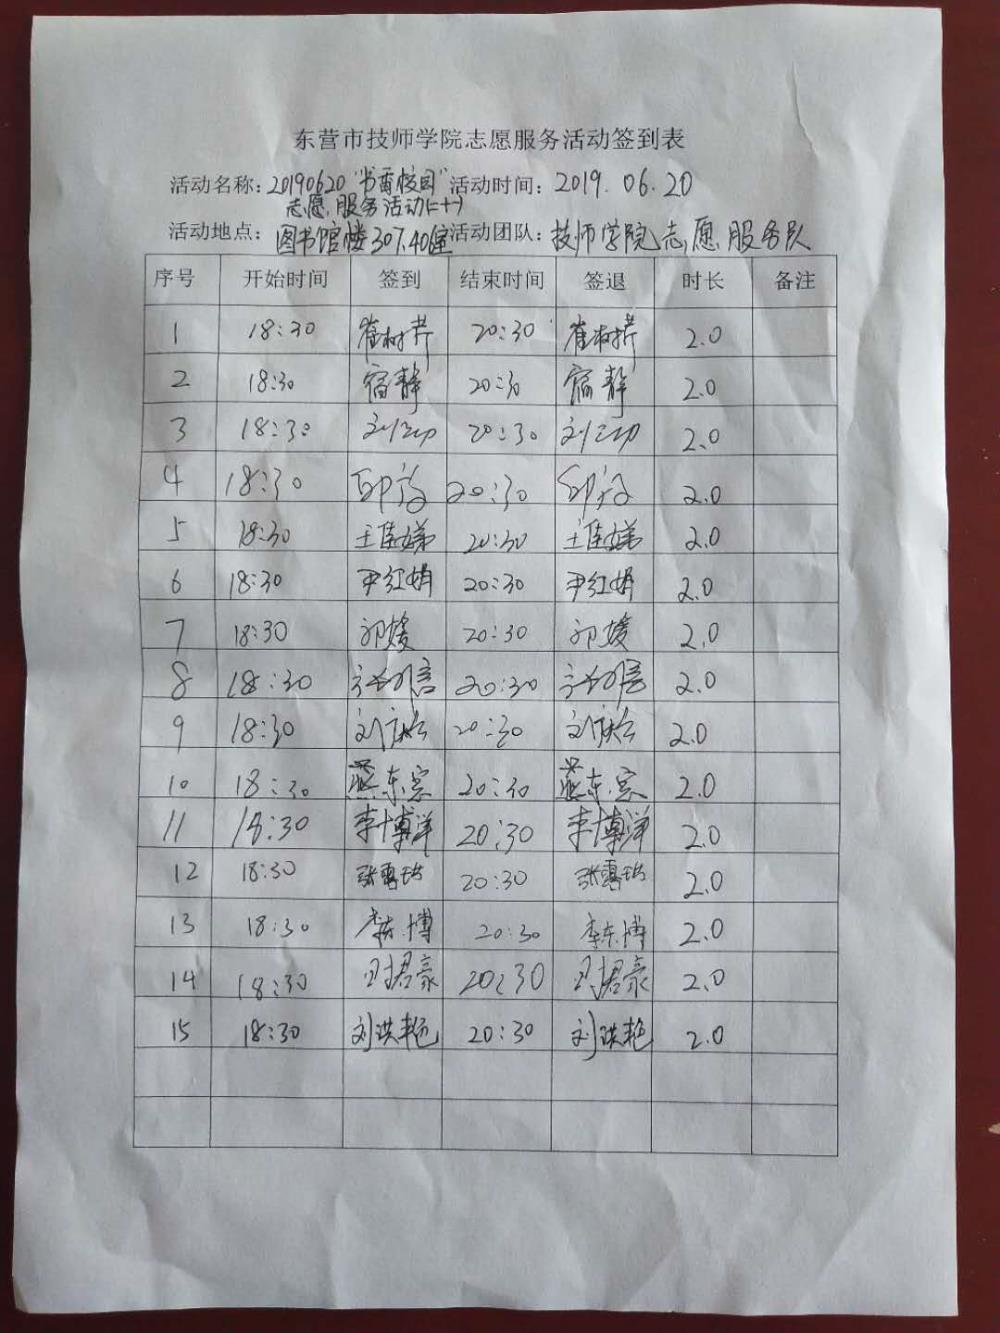 东营市技师学院志愿服务活动签到表
活动名称：20190620“书香校园” 活动时间：2019.06.20
志愿服务活动(二十)
活动地点：图书馆楼307.40室 活动团队：技师学院志愿服务队
序号 开始时间 签到 结束时间 签退 时长 备注
1 18:30 崔树芹 20:30 崔树芹 2.0
2 18:30 宿静 20:30 宿静 2.0
3 18:30 刘 20:30 刘 2.0
4 18:30 20:30 2.0
5 18:30 王佳娣 20:30 王佳娣 2.0
6 18:30 尹红娟 20:30 尹红娟 2.0
7 18:30 20:30 2.0
8 18:30 20:30 2.0
9 18:30 刘 20:30 刘 2.0
10 18:30 燕东 20:30 燕东 2.0
11 18:30 李博洋 20:30 李博洋 2.0
12 18:30 张露 20:30 张露 2.0
13 18:30 李东博 20:30 李东博 2.0
14 18:30 君豪 20:30 君豪 2.0
15 18:30 刘洪艳 20:30 刘洪艳 2.0